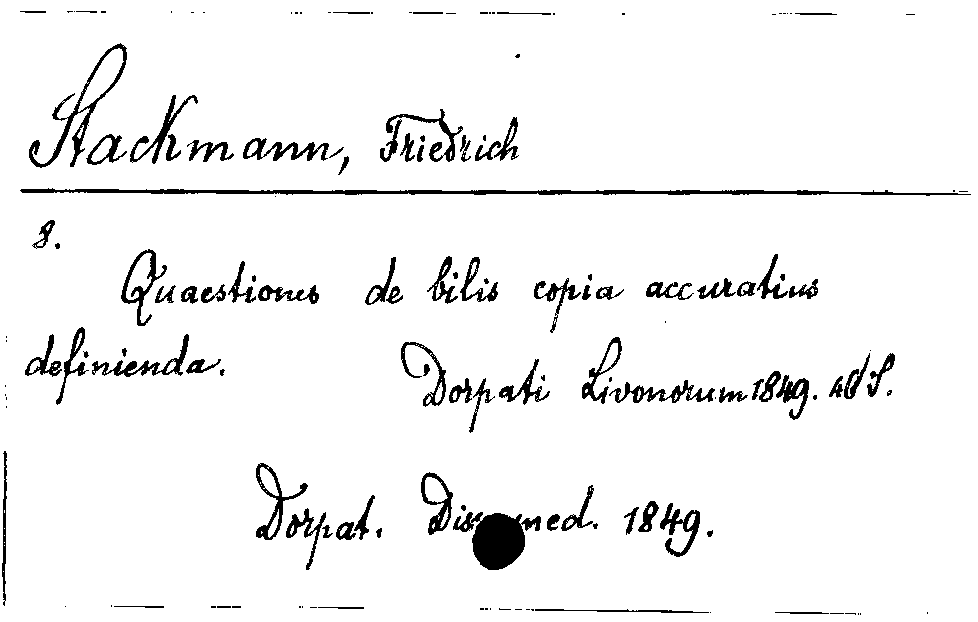 Stackmann, Friedrich
8.
Quaestiones de bilis copia accuratius
definienda.
Dorpati Livonorum 1849. S.
Dorpat. Diss. med. 1849.